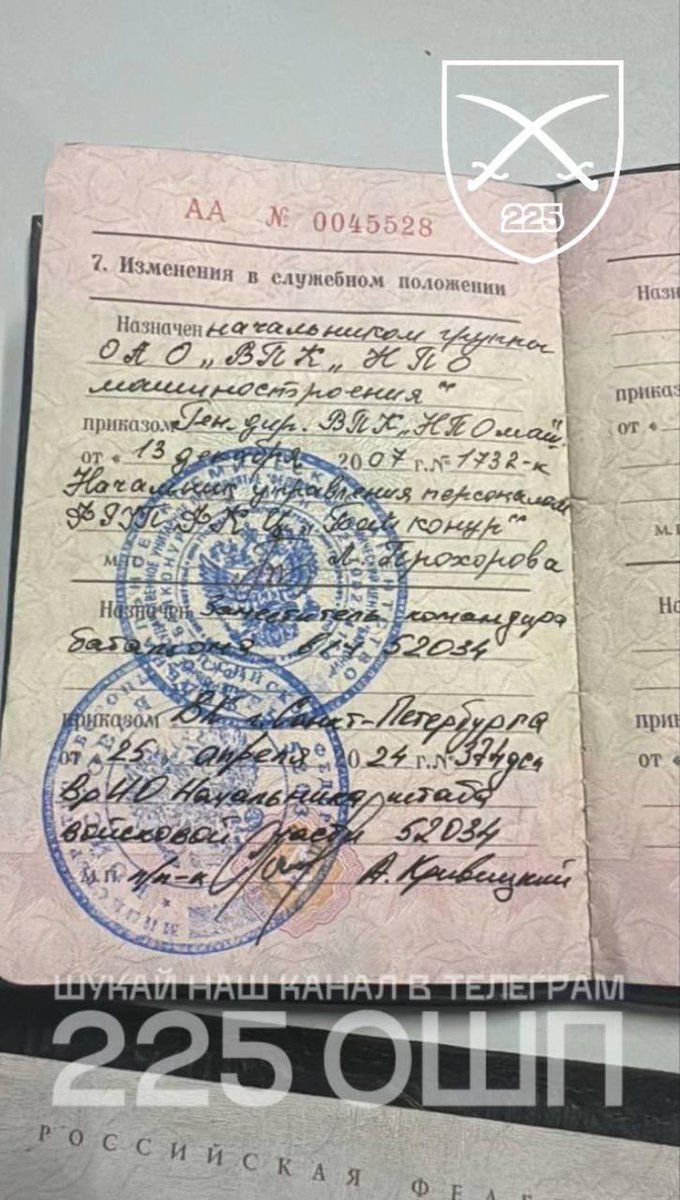 225
АА № 0045528
7. Изменения в служебном положении
Назначен начальником группы
ОАО „ВПК „НПО
машиностроения"
приказом Ген. дир. ВПК „НПОмаш"
от « 13 декабря 2007 г. № 1732-к
Начальник управления персоналом
ФГУП ФКЦ „Байконур"
М.П. Л. Прохорова
Назначен Заместитель командира
батальона в/ч 52034
приказом ВК г. Санкт-Петербурга
от « 25 » апреля 2024 г. № 374дсп
ВрИО Начальника штаба
войсковой части 52034
М.П. п/п-к А. Кривицкий
Назн
приказ
от «
М.П
На
прик
от «
ШУКАЙ НАШ КАНАЛ В ТЕЛЕГРАМ
225 ОШП
РОССИЙСКАЯ ФЕД